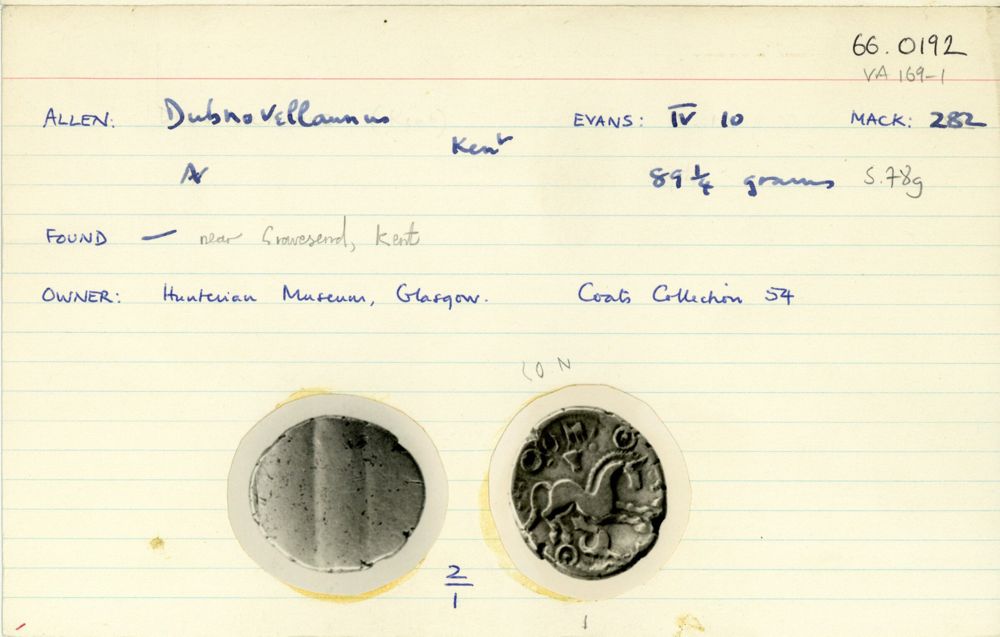 66.0192
VA 169-1
ALLEN: Dubnovellaunus EVANS: IV 10 MACK: 282
Kent
89 1/4 grams 5.78g
FOUND — near Gravesend, Kent
OWNER: Hunterian Museum, Glasgow. Coats Collection 54
2/1
1